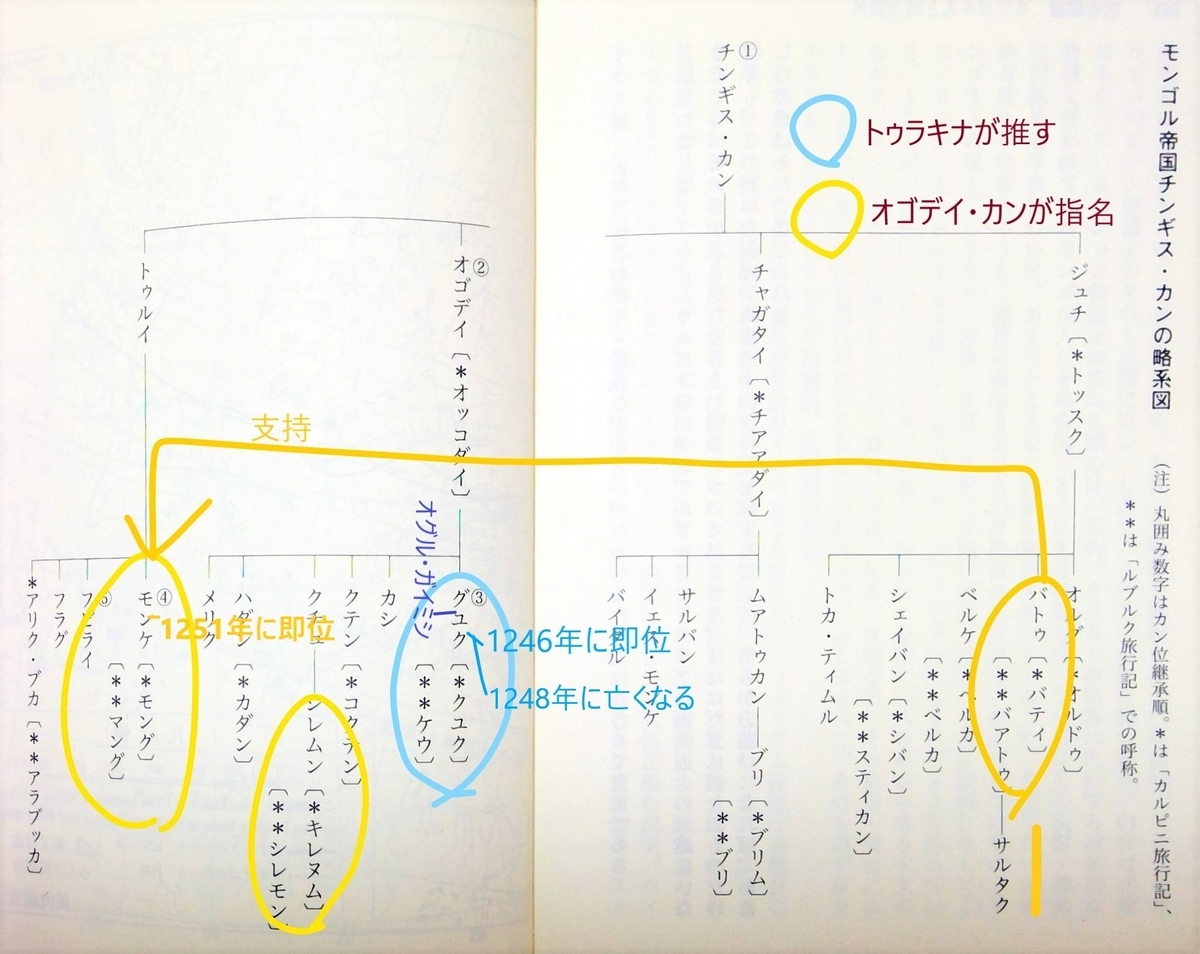 モンゴル帝国チンギス・カンの略系図
(注) 丸囲み数字はカン位継承順。*は「カルピニ旅行記」、
**は「ルブルク旅行記」での呼称。
トゥラキナが推す
オゴデイ・カンが指名
①チンギス・カン
ジュチ〔*トッスク〕
チャガタイ〔*チアアダイ〕
②オゴデイ〔*オッコダイ〕
トゥルイ
支持
オルダ〔*オルドゥ〕
バトゥ〔*バティ〕
〔**バアトゥ〕
サルタク
ベルケ〔*ベルカ〕
〔**ベルカ〕
シェイバン〔*シバン〕
〔**スティカン〕
トカ・ティムル
ムアトゥカン
ブリ〔*ブリム〕
〔**ブリ〕
サルバン
イェス・モンケ
バイダル
オグル・ガイミシ
③グユク〔*クユク〕
〔**ケウ〕
1246年に即位
1248年に亡くなる
カシ
クテン〔*コクテン〕
クチュ
シレムン〔*キレヌム〕
〔**シレモン〕
ハダン〔*カダン〕
メリク
④モンケ〔*モング〕
〔**マング〕
1251年に即位
⑤フビライ
フラグ
*アリク・ブカ〔**アラブッカ〕